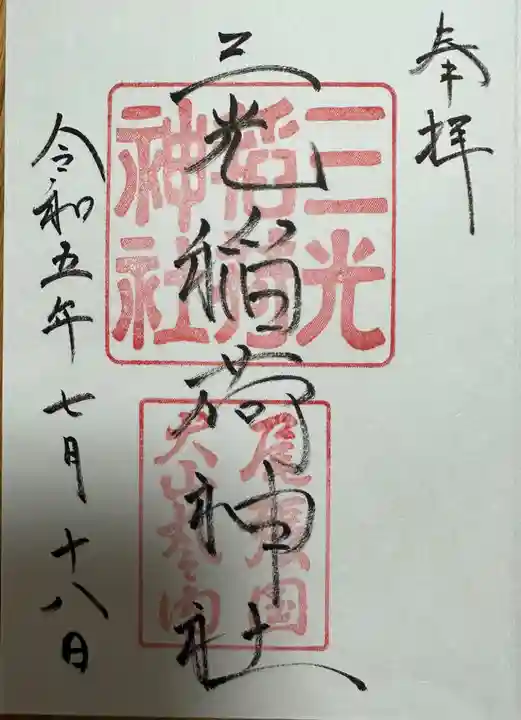 奉拝
三光稲荷神社
三光
稲荷
神社
尾張国
犬山城内
令和五年七月十八日